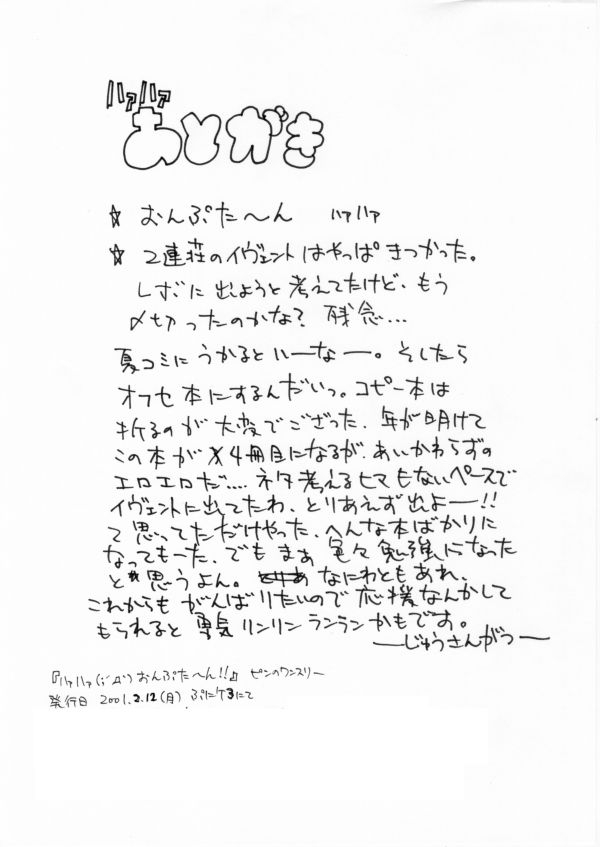 ハァハァ
あとがき
☆ おんぷた〜ん ハァハァ
☆ 2連荘のイヴェントはやっぱきつかった。
レヴォに出ようと考えてたけど、もう
〆切ったのかな?残念…
夏コミにうかるといーなー。そしたら
オフセ本にするんだいっ。コピー本は
折るのが大変でござった、年が明けて
この本が4冊目になるが、あいかわらずの
エロエロだ…. ネタ考えるヒマもないペースで
イヴェントに出てたわ、とりあえず出よー!!
て思ってただけやった、へんな本ばかりに
なってもーた、でもまぁ色々勉強になった
と思うよん。なにわともあれ、
これからもがんばりたいので応援なんかして
もられると勇気リンリンランランかもです。
―じゅうさんがつ―
『ハァハァ(;´Д`)おんぷた〜ん!!』 ピンのワンスリー
発行日 2001.2.12(月) ぷにケ3にて